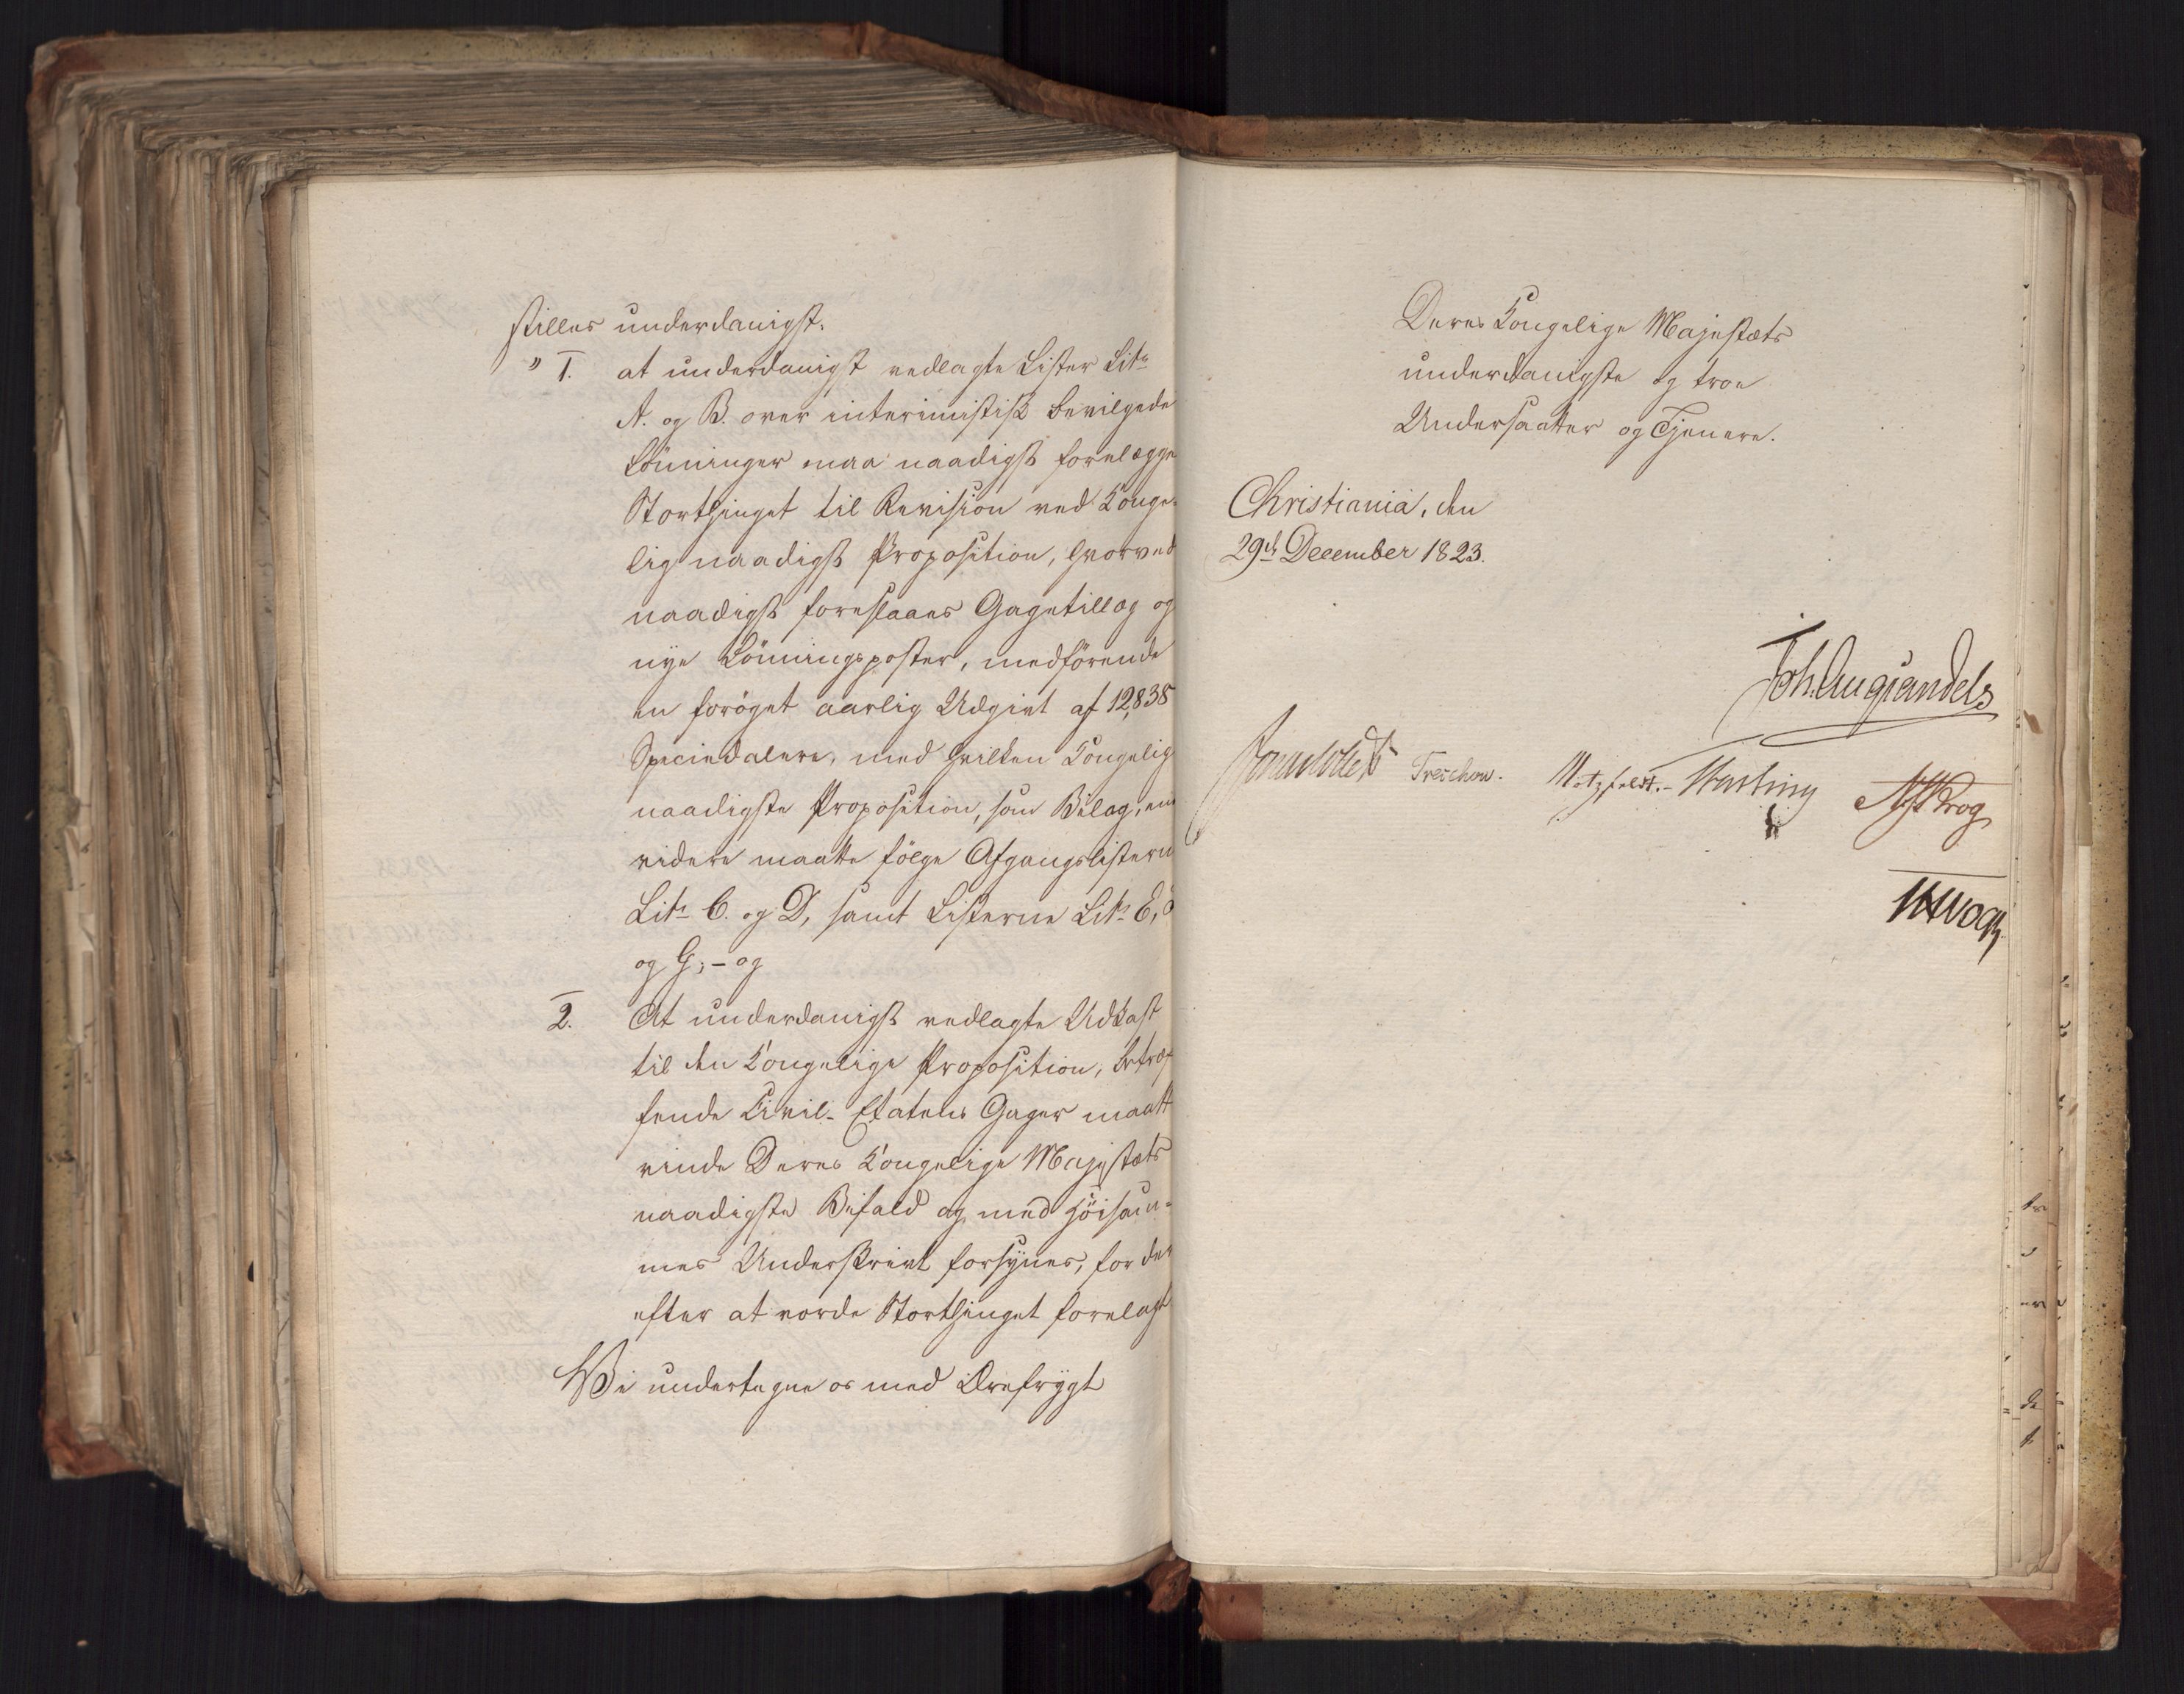 stilles underdanigst:
" 1. at underdanigst vedlagte Lister Litr
A. og B. over interimistisk bevilgede
Lönninger maa naadigst forelægge
Storthinget til Revision ved Konge-
lig naadigst Proposition, hvorved
naadigst foreslaaes Gagetillæg og
nye Lönningsposter, medförende
en foröget aarlig Udgivt af 12,838
Speciedalere, med hvilken Kongelig
naadigste Proposition, som Bilag, en
videre maatte fölge Afgangslisterne
Litr C. og D, samt Listerne Litr E,
og G; - og
2. At underdanigst vedlagte Udkast
til den Kongelige Proposition, betræf
fende Civil-Etatens Gager maatt
vinde Deres Kongelige Majestæts
naadigste Bifald og med Höisam-
mes Underskrivt forsynes, for der
efter at vorde Storthinget forelagt
Vi undertegne os med Ærefrygt
Deres Kongelige Majestæts
underdanigste og troe
Undersaatter og Tjenere.
Christiania, den
29de December 1823.
Joh. Aug Sandels
Treschow. Motzfeldt. Fasting Krog
Vogt